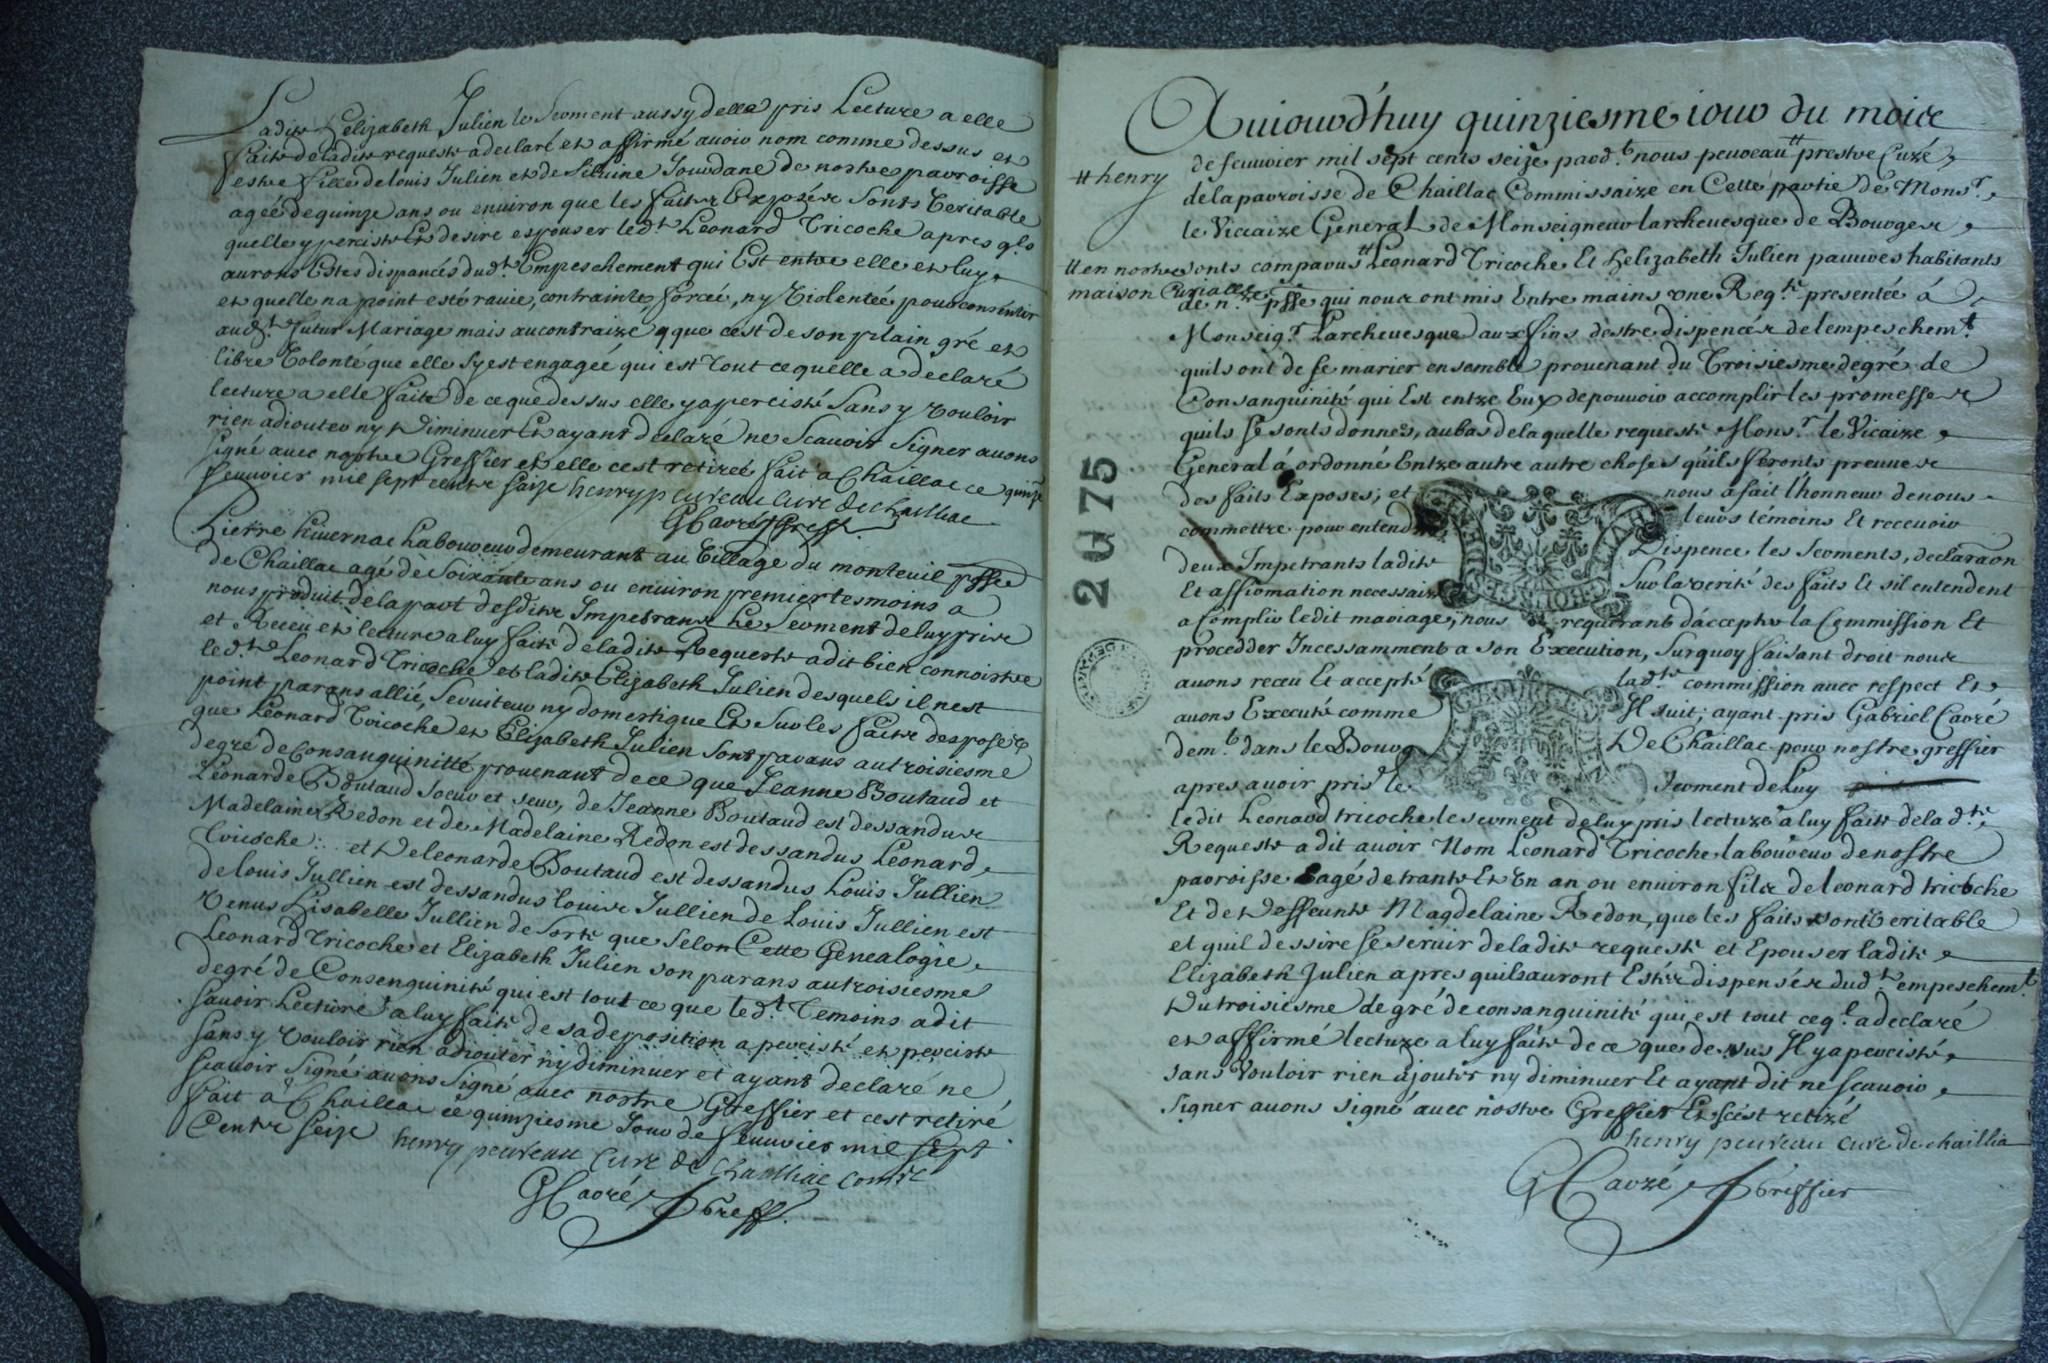 Ladite Helizabeth Julien le Serment aussy delle pris Lecture a elle
faite de ladite requeste a declaré et affirmé avoir nom comme dessus et
estre fille de louis Julien et de Silvine Jourdane de nostre parroisse
agée de quinze ans ou environ que les faits Exposés Sonts Veritable
quelle y perciste Et desire espouser led.t Leonard Tricoche apres q.ls
auronts Estes dispancés dud.t Empeschement qui Est entre elle et luy
et quelle na point esté ravie, contrainte, forcée, ny Violentée pour consentir
aud.t futur Mariage mais aucontraire que cest de son plain gré et
libre Volonté que elle Sy est engagée qui est tout ce quelle a declaré
lecture a elle faite de ce que dessus elle y a percisté Sans y Vouloir
rien adiouter ny Diminuer Et ayant declaré ne Scavoir Signer avons
Signé avec nostre Greffier et elle cest retirée fait a Chaillac ce quinze
feuvrier mil sept cents saize henry peureau cure de chaillac
G Carré Greff.
Pierre hivernac Laboureur demeurant au Village du monteuil psse
de Chaillac agé de Soixante ans ou environ premier tesmoins a
nous produit de la part desdits Impetrans Le Serment de luy pris
et Receu et lecture a luy faite de ladite Requeste a dit bien connoistre
led.t Leonard Tricoche et ladite Elizabeth Julien desquels il nest
point parans allié, Serviteur ny domestique Et Sur les faits desposé
que Leonard Tricoche et Elizabeth Julien Sont parans autroisiesme
degré de Consanguinitté provenant de ce que Jeanne Boutaud et
Leonarde Boutaud soeur et seur, de Jeanne Boutaud est dessandue
Madelaine Redon et de Madelaine Redon est dessandus Leonard
Tricoche et De leonarde Boutaud est dessandus Louis Jullien
de louis Jullien est dessandus louis Jullien de Louis Jullien est
Venus Lisabelle Jullien de Sorte que Selon Cette Genealogie
Leonard Tricoche et Elizabeth Julien son parans autroisiesme
degré de Consenguinité qui est tout ce que led.t Temoins a dit
savoir Lecture a luy faite de sa deposition a percisté et perciste
Sans y Vouloir rien adiouter ny diminuer et ayant declaré ne
scavoir Signé avons Signé avec nostre Greffier et cest retiré
fait a Chaillac ce quinziesme Jour de feuvrier mil Sept
Cents Seize henry peureau cure de chailliac comre
G Carré Greff.
Auiourd'huy quinziesme iour du moice
de feuvrier mil sept cents seize pard.t nous peureau # prestre Curé
# henry
de la parroisse de Chaillac Commissaire en Cette partie de Mons.r
le Viccaire General de Monseigneur larchevesque de Bourges
sonts comparus # Leonard Tricoche Et Helizabeth Julien pauvres habitants
# en nostre
maison Curialle
de n.re psse qui nous ont mis Entre mains une Req.te presentée á
Monseig.r Larchevesque aux fins destre dispencés de lempeschem.t
quils ont de se marier ensemble provenant du Troisiesme degré de
Consanguinité qui Est entre Eux de pouvoir accomplir les promesses
quils se sonts donnés, au bas de laquelle requeste Mons.r le Vicaire
General á ordonné Entre autre autre choses quils feronts preuves
des faits Exposes; et nous a fait l'honneur de nous
commettre pour entendre leurs témoins Et recevoir
deux Impetrants ladite Dispence les Serments, declaraon
Et affirmation necessaire Sur la verité des faits Et sil entendent
acomplir ledit mariage, nous requerant d'accepter la Commission Et
procedder Incessamment a son Execution, Surquoy faisant droit nous
avons receu Et accepté lad.te commission avec respect Et
avons Executé comme Il suit; ayant pris Gabriel Carré
dem.t dans le Bourg De Chaillac pour nostre greffier
apres avoir pris le Serment de Luy
ledit Leonard tricoche le serment de luy pris lecture a luy faite de lad.te
Requeste a dit avoir Nom Leonard Tricoche laboureur de nostre
parroisse agé de trante Et Un an ou environ fils de leonard tricoche
Et de Deffeunte Magdelaine Redon, que les faits sont Veritable
et quil dessire se servir de ladite requeste et Epouser ladite
Elizabeth Julien apres quils auront Estes dispensés dud.t empeschem.t
Du troisiesme degré de consanguinité qui est tout ceq.l a declaré
et affirmé lecture a luy faite de ce que dessus Il y a percisté
sans Vouloir rien ajouter ny diminuer Et ayant dit ne scavoir
signer avons signé avec nostre Greffier Et cest retiré
henry peureau cure de chaillia
G Carré Greffier
2 G 75